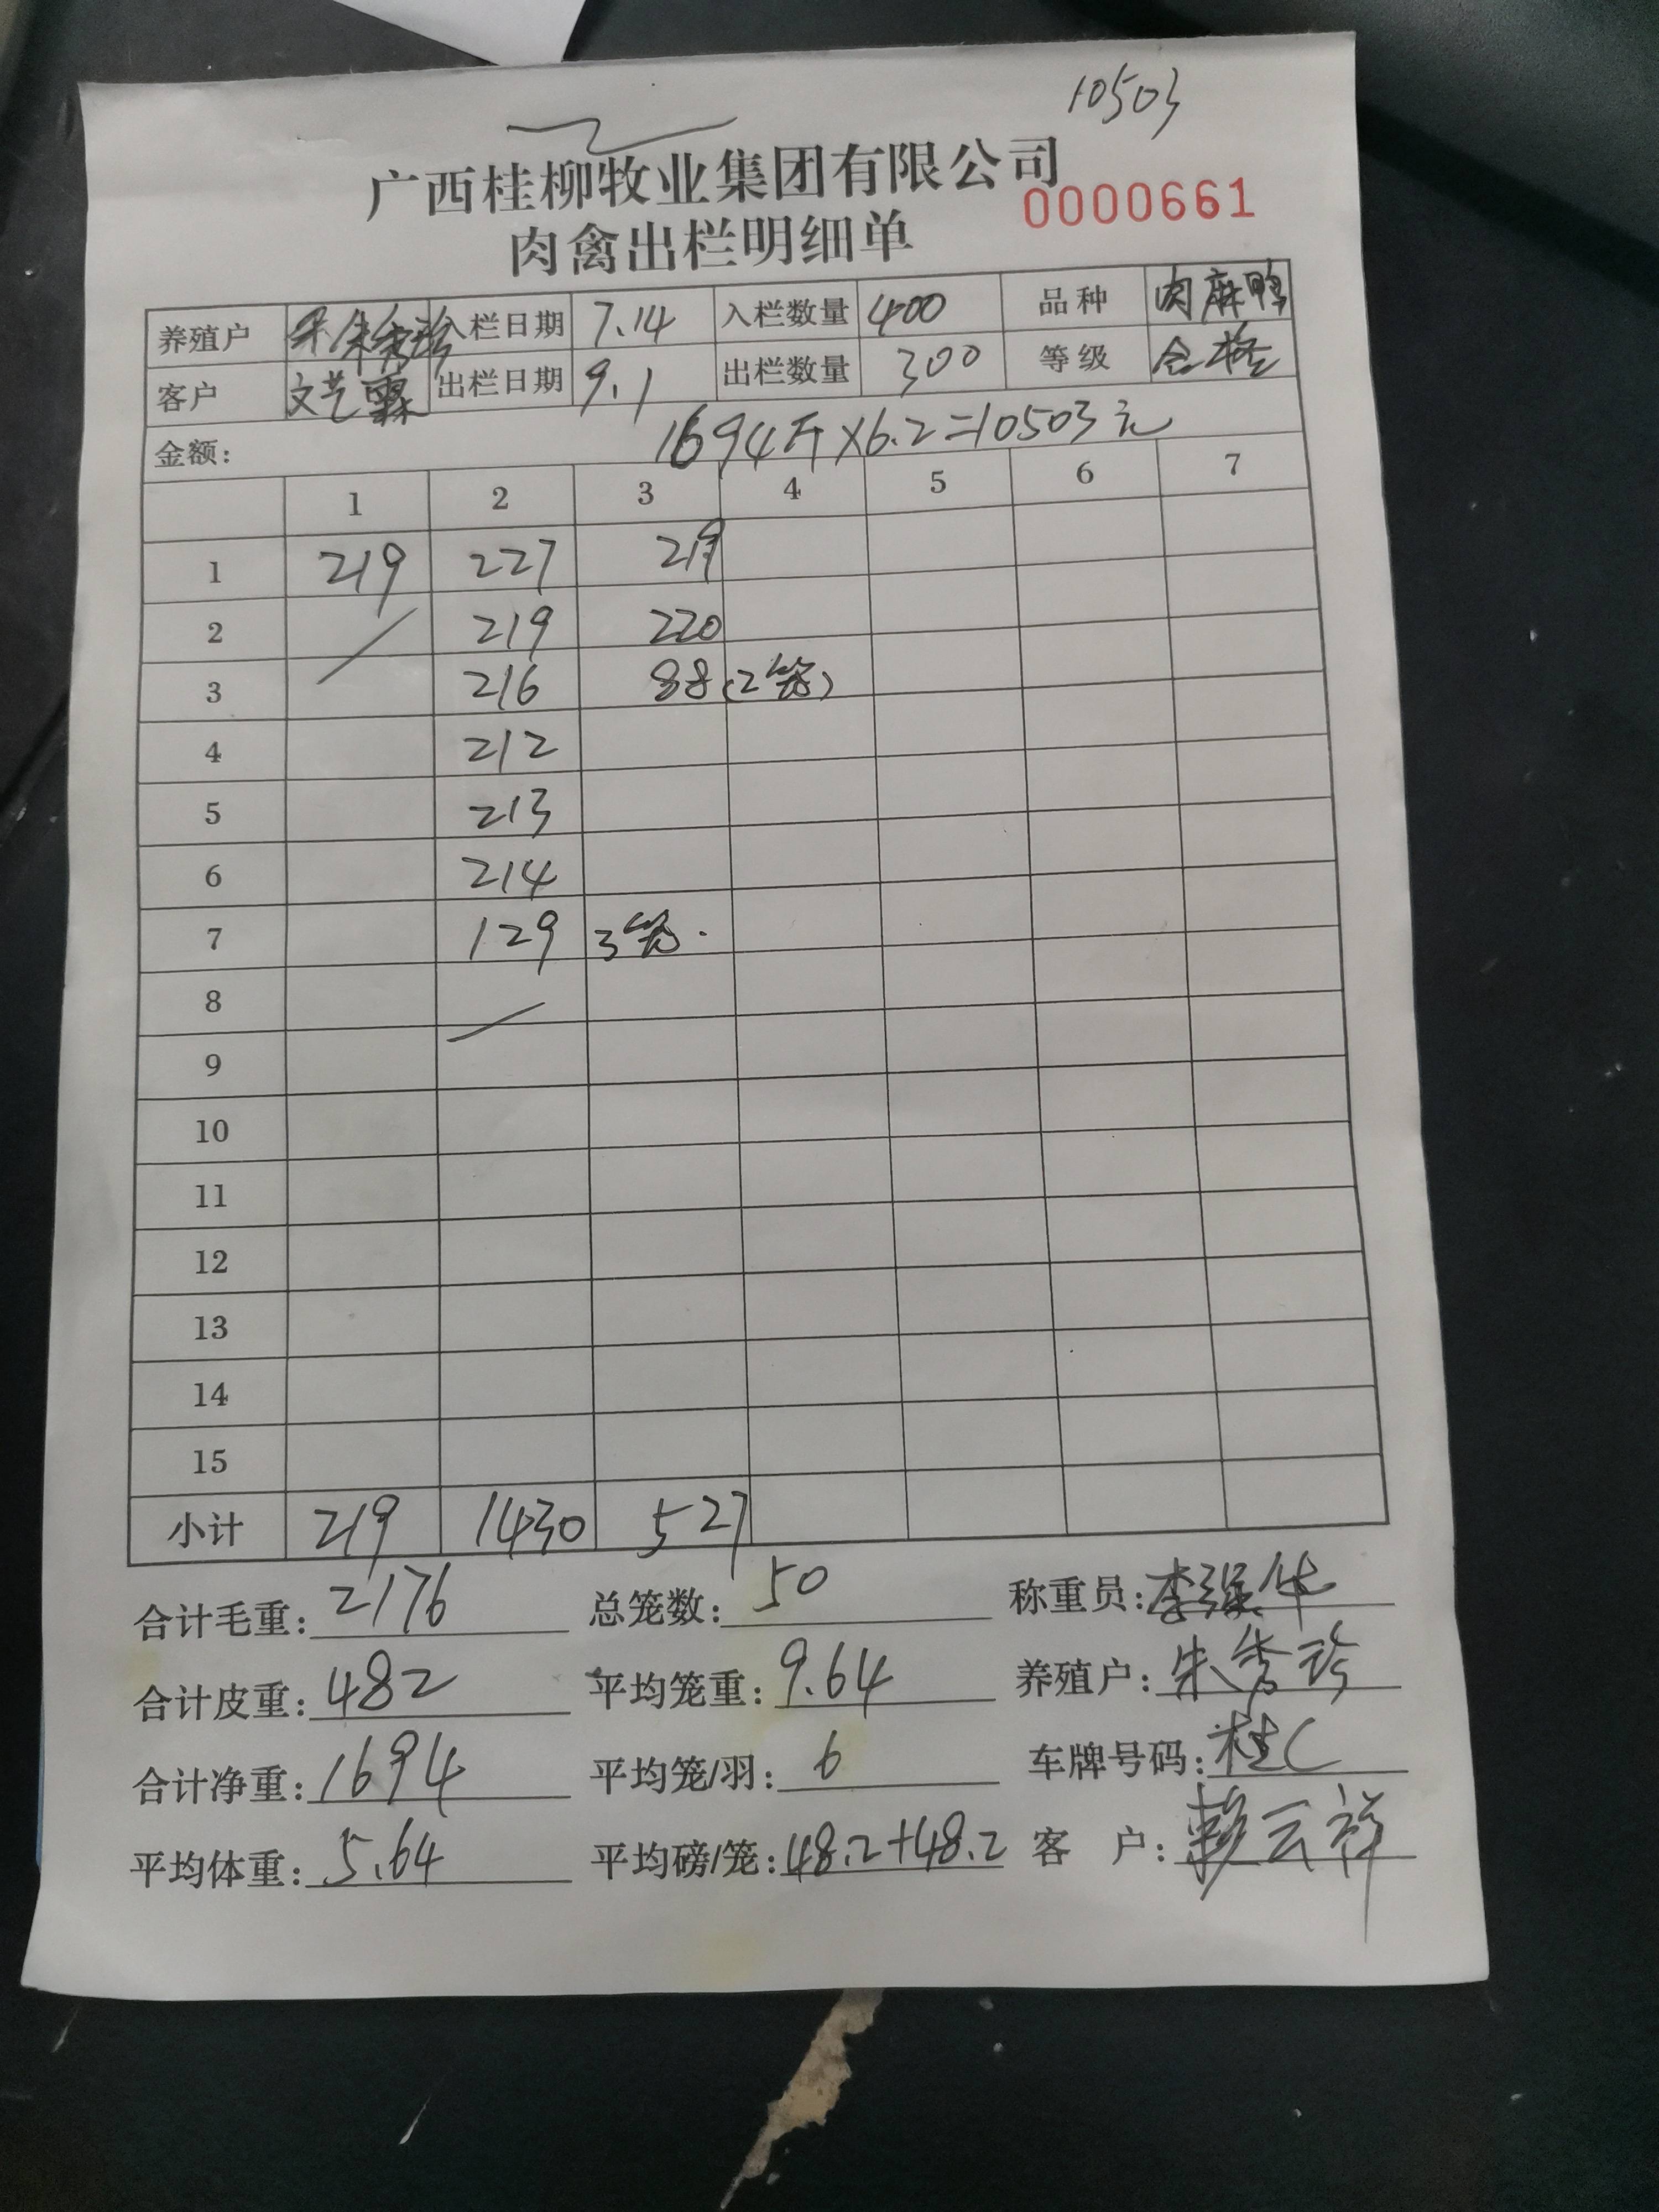 10503
广西桂柳牧业集团有限公司
0000661
肉禽出栏明细单
养殖户 朱秀珍 入栏日期 7.14 入栏数量 400 品种 肉麻鸭
客户 文艺霖 出栏日期 9.1 出栏数量 300 等级 合格
金额: 1694斤×6.2=10503元
1 2 3 4 5 6 7
1 219 227 219
2 219 220
3 216 88(2笼)
4 212
5 213
6 214
7 129 3笼.
8
9
10
11
12
13
14
15
小计 219 1430 527
合计毛重: 2176 总笼数: 50 称重员: 李强华
合计皮重: 482 平均笼重: 9.64 养殖户: 朱秀珍
合计净重: 1694 平均笼/羽: 6 车牌号码: 桂C
平均体重: 5.64 平均磅/笼: 48.2+48.2 客 户: 赖云祥